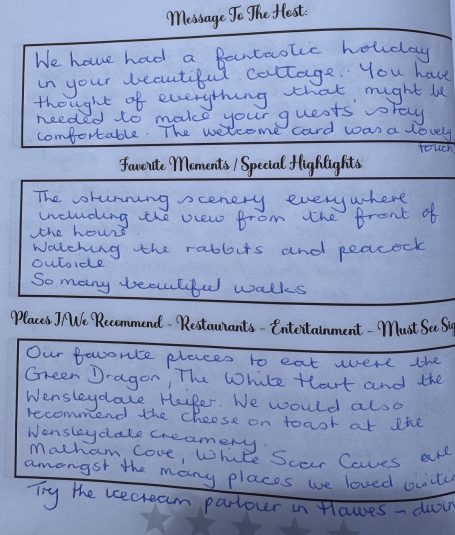 Message To The Host:
We have had a fantastic holiday
in your beautiful cottage. You have
thought of everything that might be
needed to make your guests' stay
comfortable. The welcome card was a lovely
touch
Favorite Moments / Special Highlights
The stunning scenery everywhere
including the view from the front of
the house.
Watching the rabbits and peacock
outside
So many beautiful walks
Places I/We Recommend - Restaurants - Entertainment - Must See Sig
Our favorite places to eat were the
Green Dragon, The White Hart and the
Wensleydale Heifer. We would also
recommend the cheese on toast at the
Wensleydale creamery.
Malham Cove, White Scar Caves are
amongst the many places we loved visitin
Try the icecream parlour in Hawes - divin